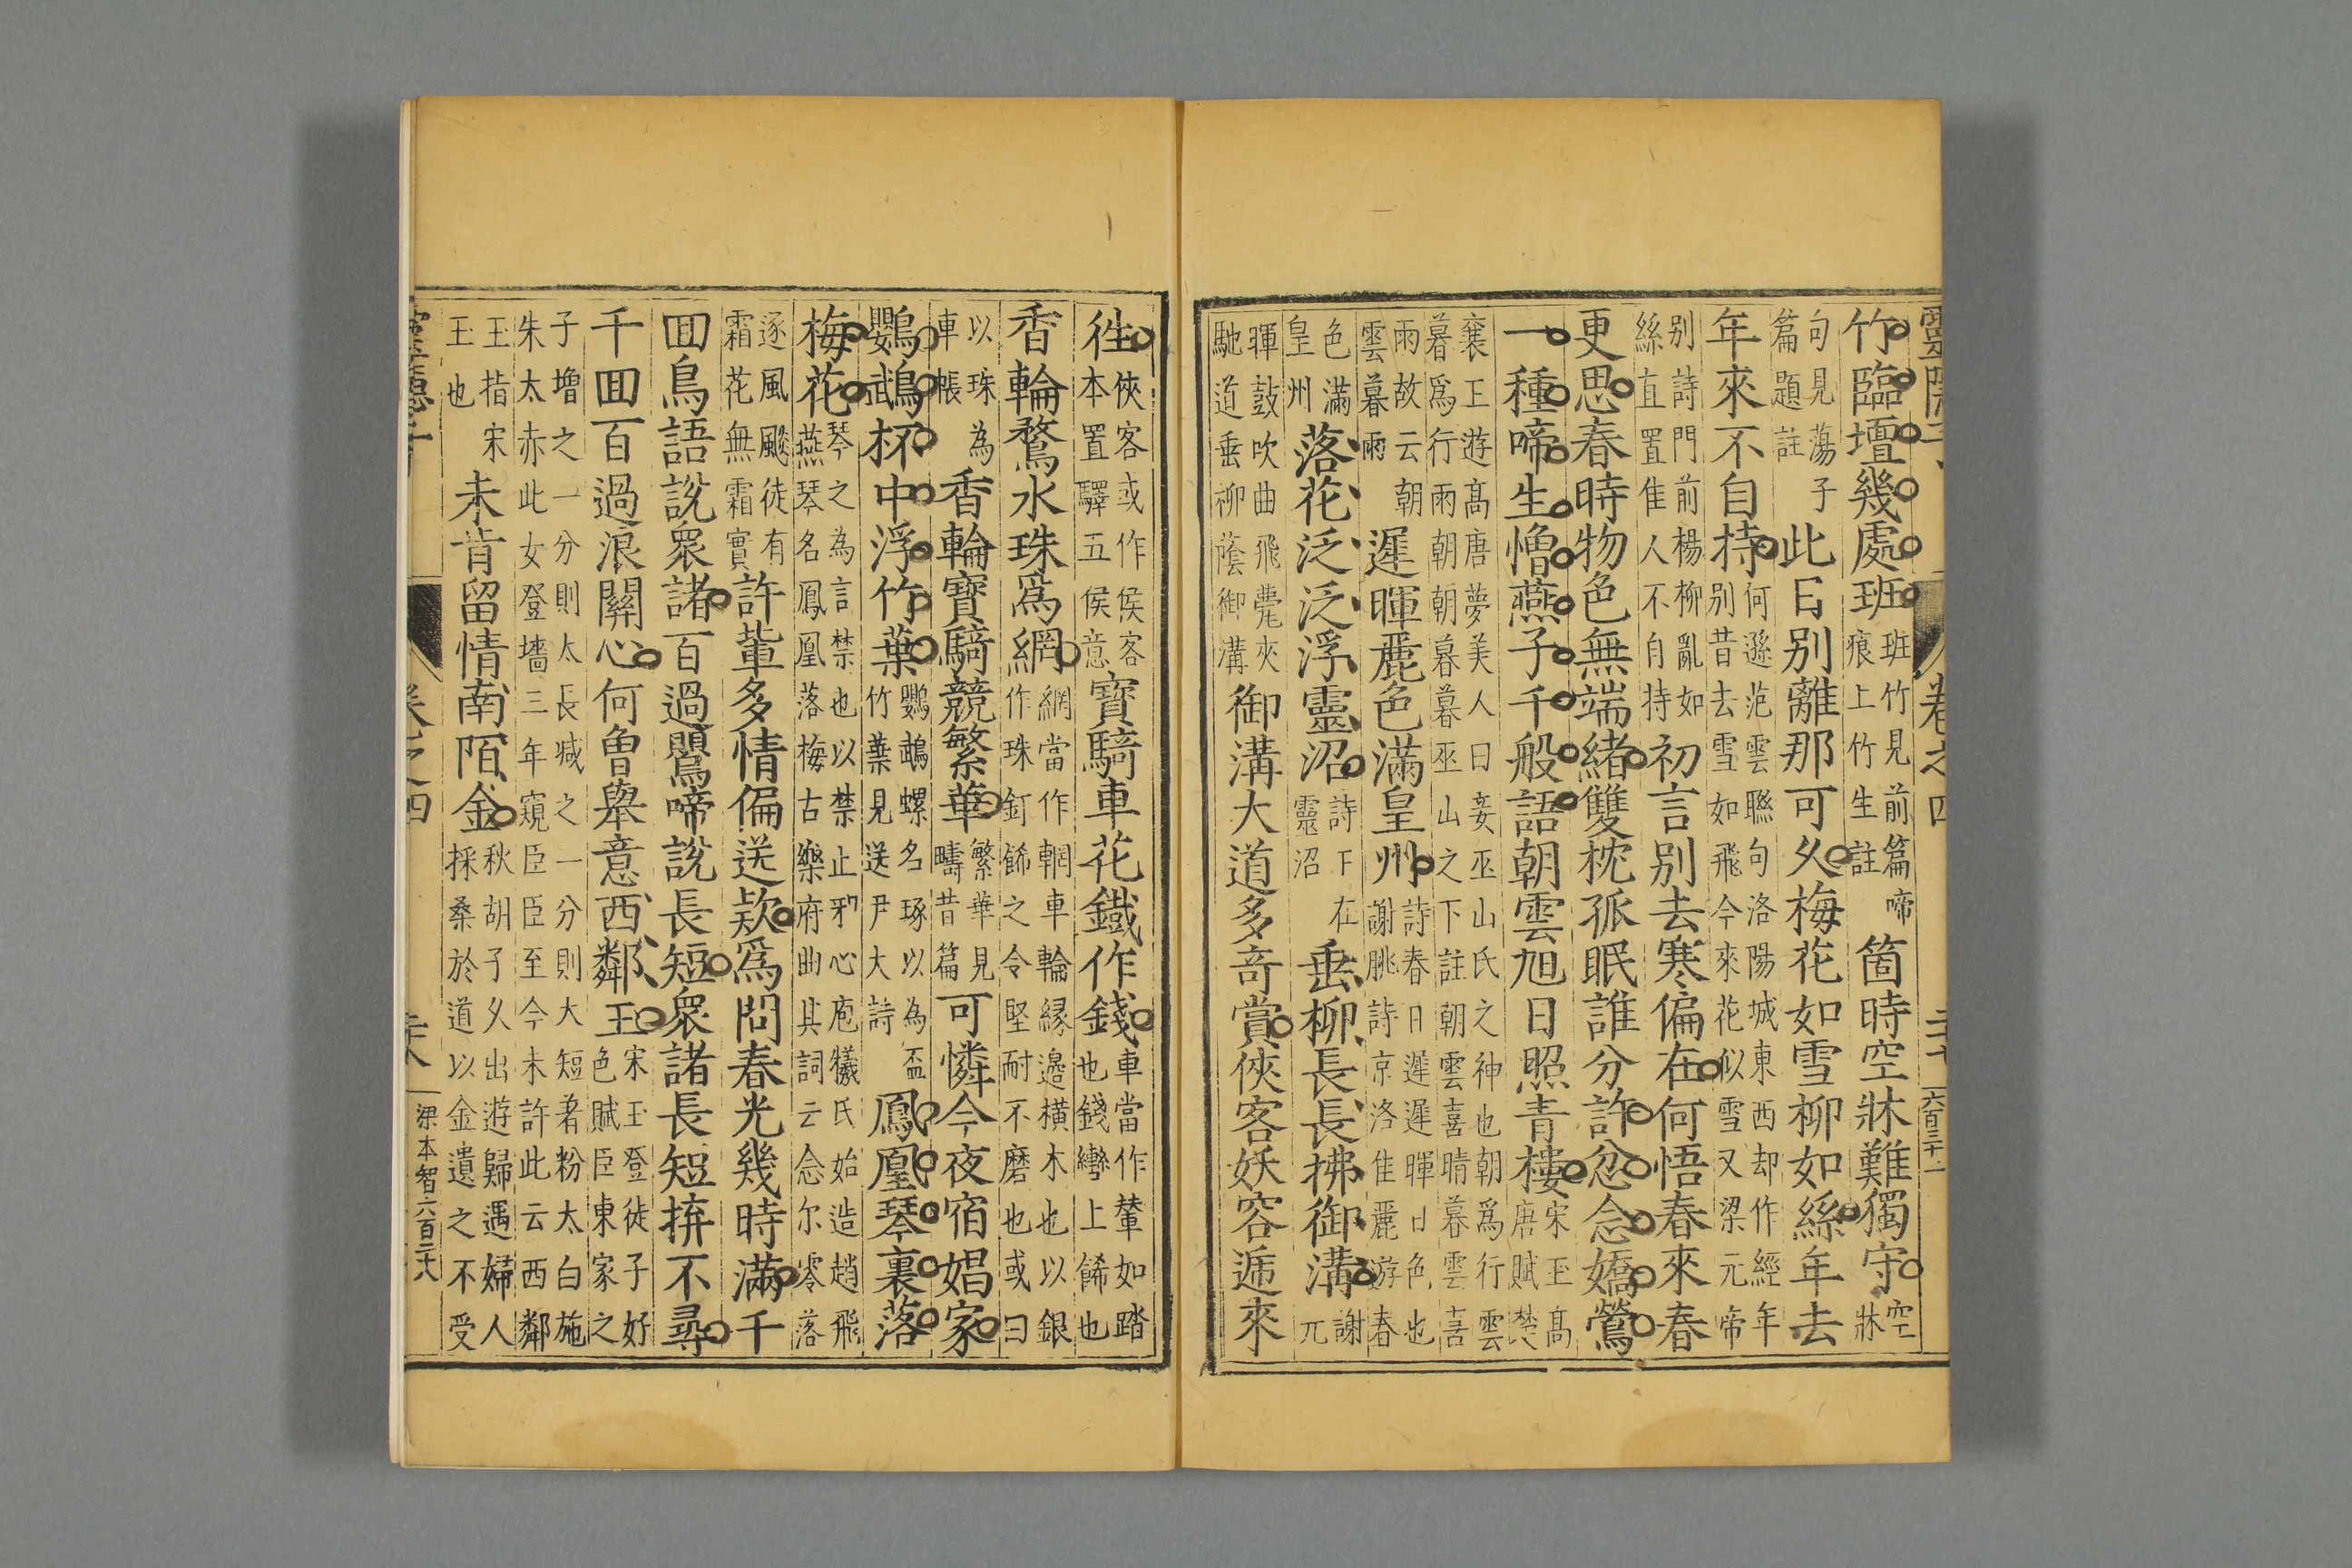 卷之四
竹臨壇幾處班班竹見前篇啼痕上竹生註箇時空牀難獨守空牀
句見蕩子篇題註此日别離那可久梅花如雪柳如絲年去
年來不自持何遜范雲聮句洛陽城東西却作經年别昔去雪如飛今來花似雪又梁元帝
别詩門前楊柳亂如絲直置佳人不自持初言别去寒偏在何悟春來春
更思春時物色無端緒雙枕孤眠誰分許忿念嬌鶯
一種啼生憎燕子千般語朝雲旭日照青樓宋玉高唐賦楚
襄王游高唐夢美人曰妾巫山氏之神也朝爲行雲暮爲行雨朝朝暮暮巫山之下註朝雲喜晴暮雲喜
雨故云朝雲暮雨遲暉麗色滿皇州詩春日遲遲暉日色也謝朓詩京洛佳麗游春
色滿皇州落花泛泛浮靈沼詩下在靈沼垂柳長長拂御溝謝兀
暉鼓吹曲飛甍夾馳道垂柳蔭御溝御溝大道多奇賞俠客妖容遞來
徃俠客或作侯客本置驛五侯意寶騎車花鐵作錢車當作輦如踏也錢轡上餙也
香輪鶩水珠爲網網當作輞車輪緣邊横木也以銀作珠釘餙之令堅耐不磨也或曰
以珠為車帳香輪寶騎競繁華繁華見疇昔篇可憐今夜宿娼家
鸚鵡杯中浮竹葉鸚鵡螺名琢以為盃竹葉見送尹大詩鳳凰琴裏落
梅花琴之為言禁也以禁止邪心庖犧氏始造趙飛燕琴名鳳凰落梅古樂府曲其詞云念尔零落
逐風飈徒有霜花無霜實許輩多情偏送款爲問春光幾時滿千
囬鳥語說衆諸百過鸎啼說長短衆諸長短拚不尋
千囬百過浪關心何曾舉意西鄰玉宋玉登徒子好色賦臣東家之
子增之一分則太長减之一分則大短着粉太白施朱太赤此女登墻三年窺臣臣至今未許此云西鄰
王指宋玉也未肯留情南陌金秋胡子久出遊歸遇婦人採桑於道以金遺之不受
梁本智六百二十八